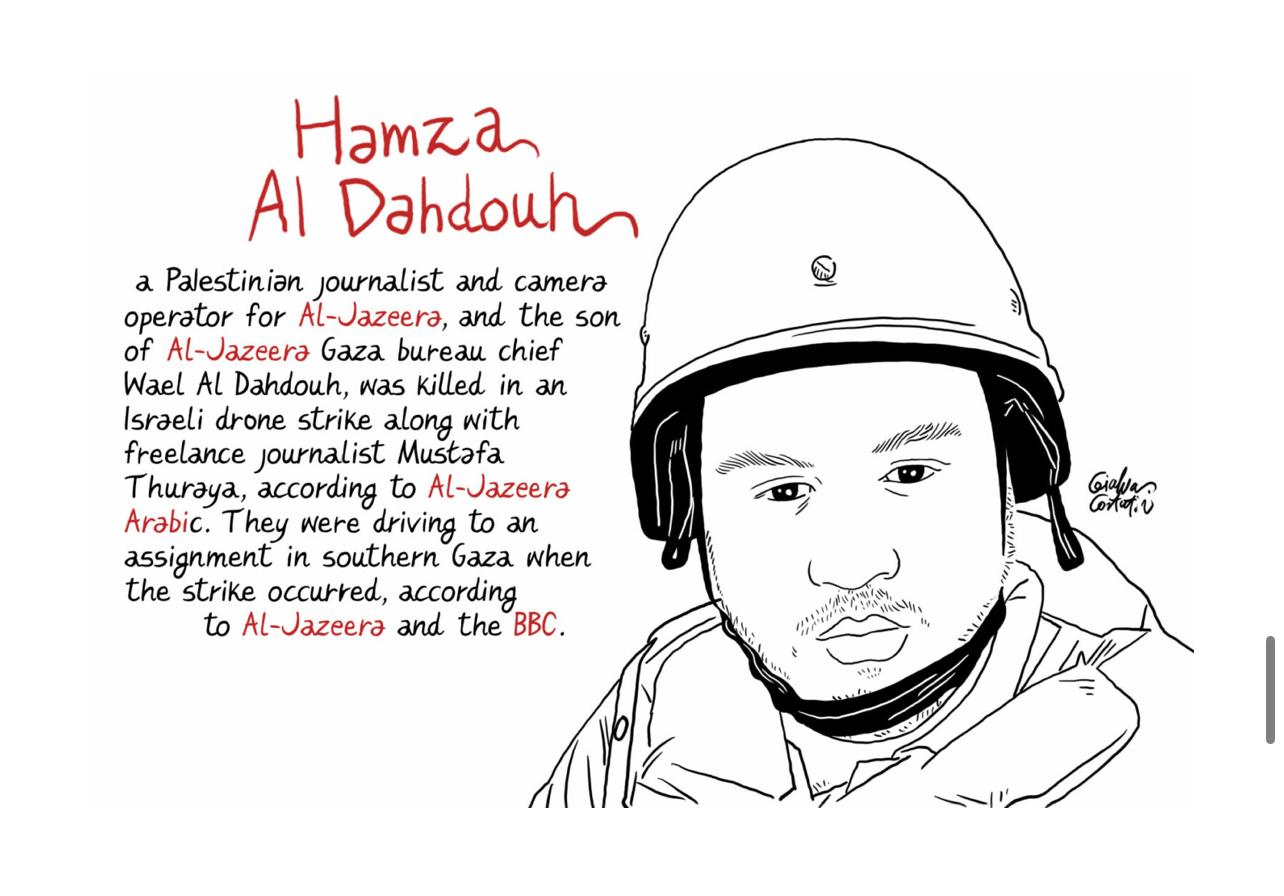 Hamza
Al Dahdouh
a Palestinian journalist and camera
operator for Al-Jazeera, and the son
of Al-Jazeera Gaza bureau chief
Wael Al Dahdouh, was killed in an
Israeli drone strike along with
freelance journalist Mustafa
Thuraya, according to Al-Jazeera
Arabic. They were driving to an
assignment in southern Gaza when
the strike occurred, according
to Al-Jazeera and the BBC.